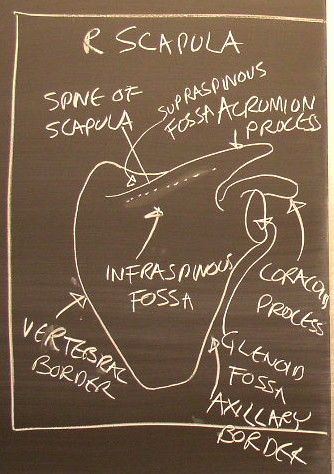 R SCAPULA
SPINE OF
SCAPULA
SUPRASPINOUS
FOSSA
ACROMION
PROCESS
INFRASPINOUS
FOSSA
CORACOID
PROCESS
VERTEBRAL
BORDER
GLENOID
FOSSA
AXILLARY
BORDER